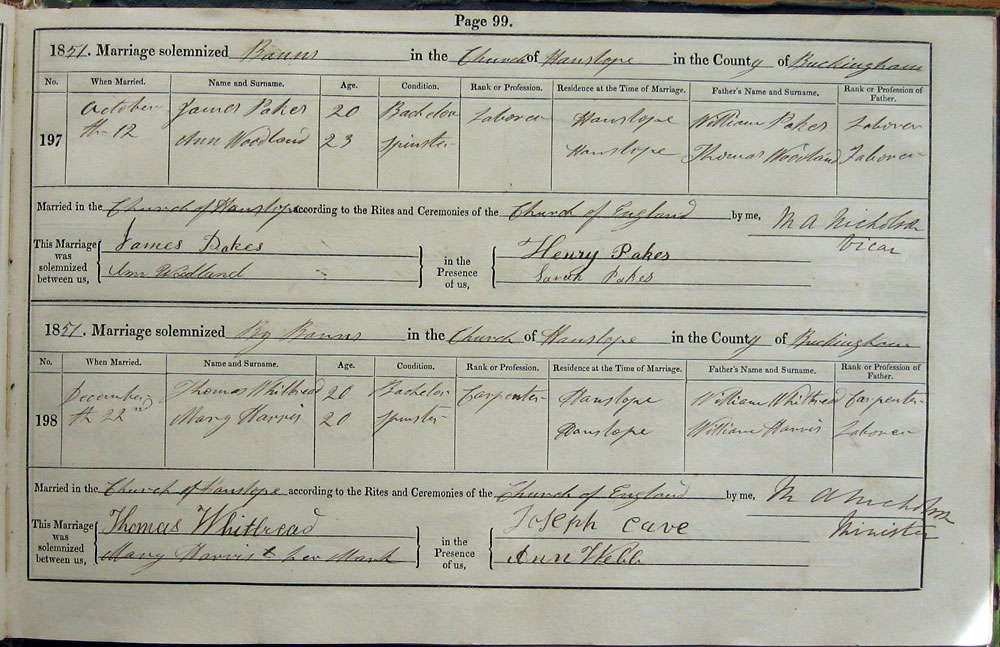 Page 99.
1851. Marriage solemnized Banns in the Church of Hanslope in the County of Buckingham
No. When Married. Name and Surname. Age. Condition. Rank or Profession. Residence at the Time of Marriage. Father's Name and Surname. Rank or Profession of Father.
197 October James Pakes 20 Bachelor Laborer Hanslope William Pakes Laborer
th 12 Ann Woodland 23 Spinster Hanslope Thomas Woodland Laborer
Married in the Church of Hanslope according to the Rites and Ceremonies of the Church of England by me, M A Nicholson
Vicar
This Marriage was solemnized between us, James Pakes in the Presence of us, Henry Pakes
Ann Woodland Sarah Pakes
1851. Marriage solemnized By Banns in the Church of Hanslope in the County of Buckingham
No. When Married. Name and Surname. Age. Condition. Rank or Profession. Residence at the Time of Marriage. Father's Name and Surname. Rank or Profession of Father.
198 December Thomas Whitbread 20 Bachelor Carpenter Hanslope William Whitbread Carpenter
th 22nd Mary Harris 20 Spinster Hanslope William Harris Laborer
Married in the Church of Hanslope according to the Rites and Ceremonies of the Church of England by me, M A Nicholson
Minister
This Marriage was solemnized between us, Thomas Whitbread in the Presence of us, Joseph Cave
Mary Harris + her Mark Ann Webb